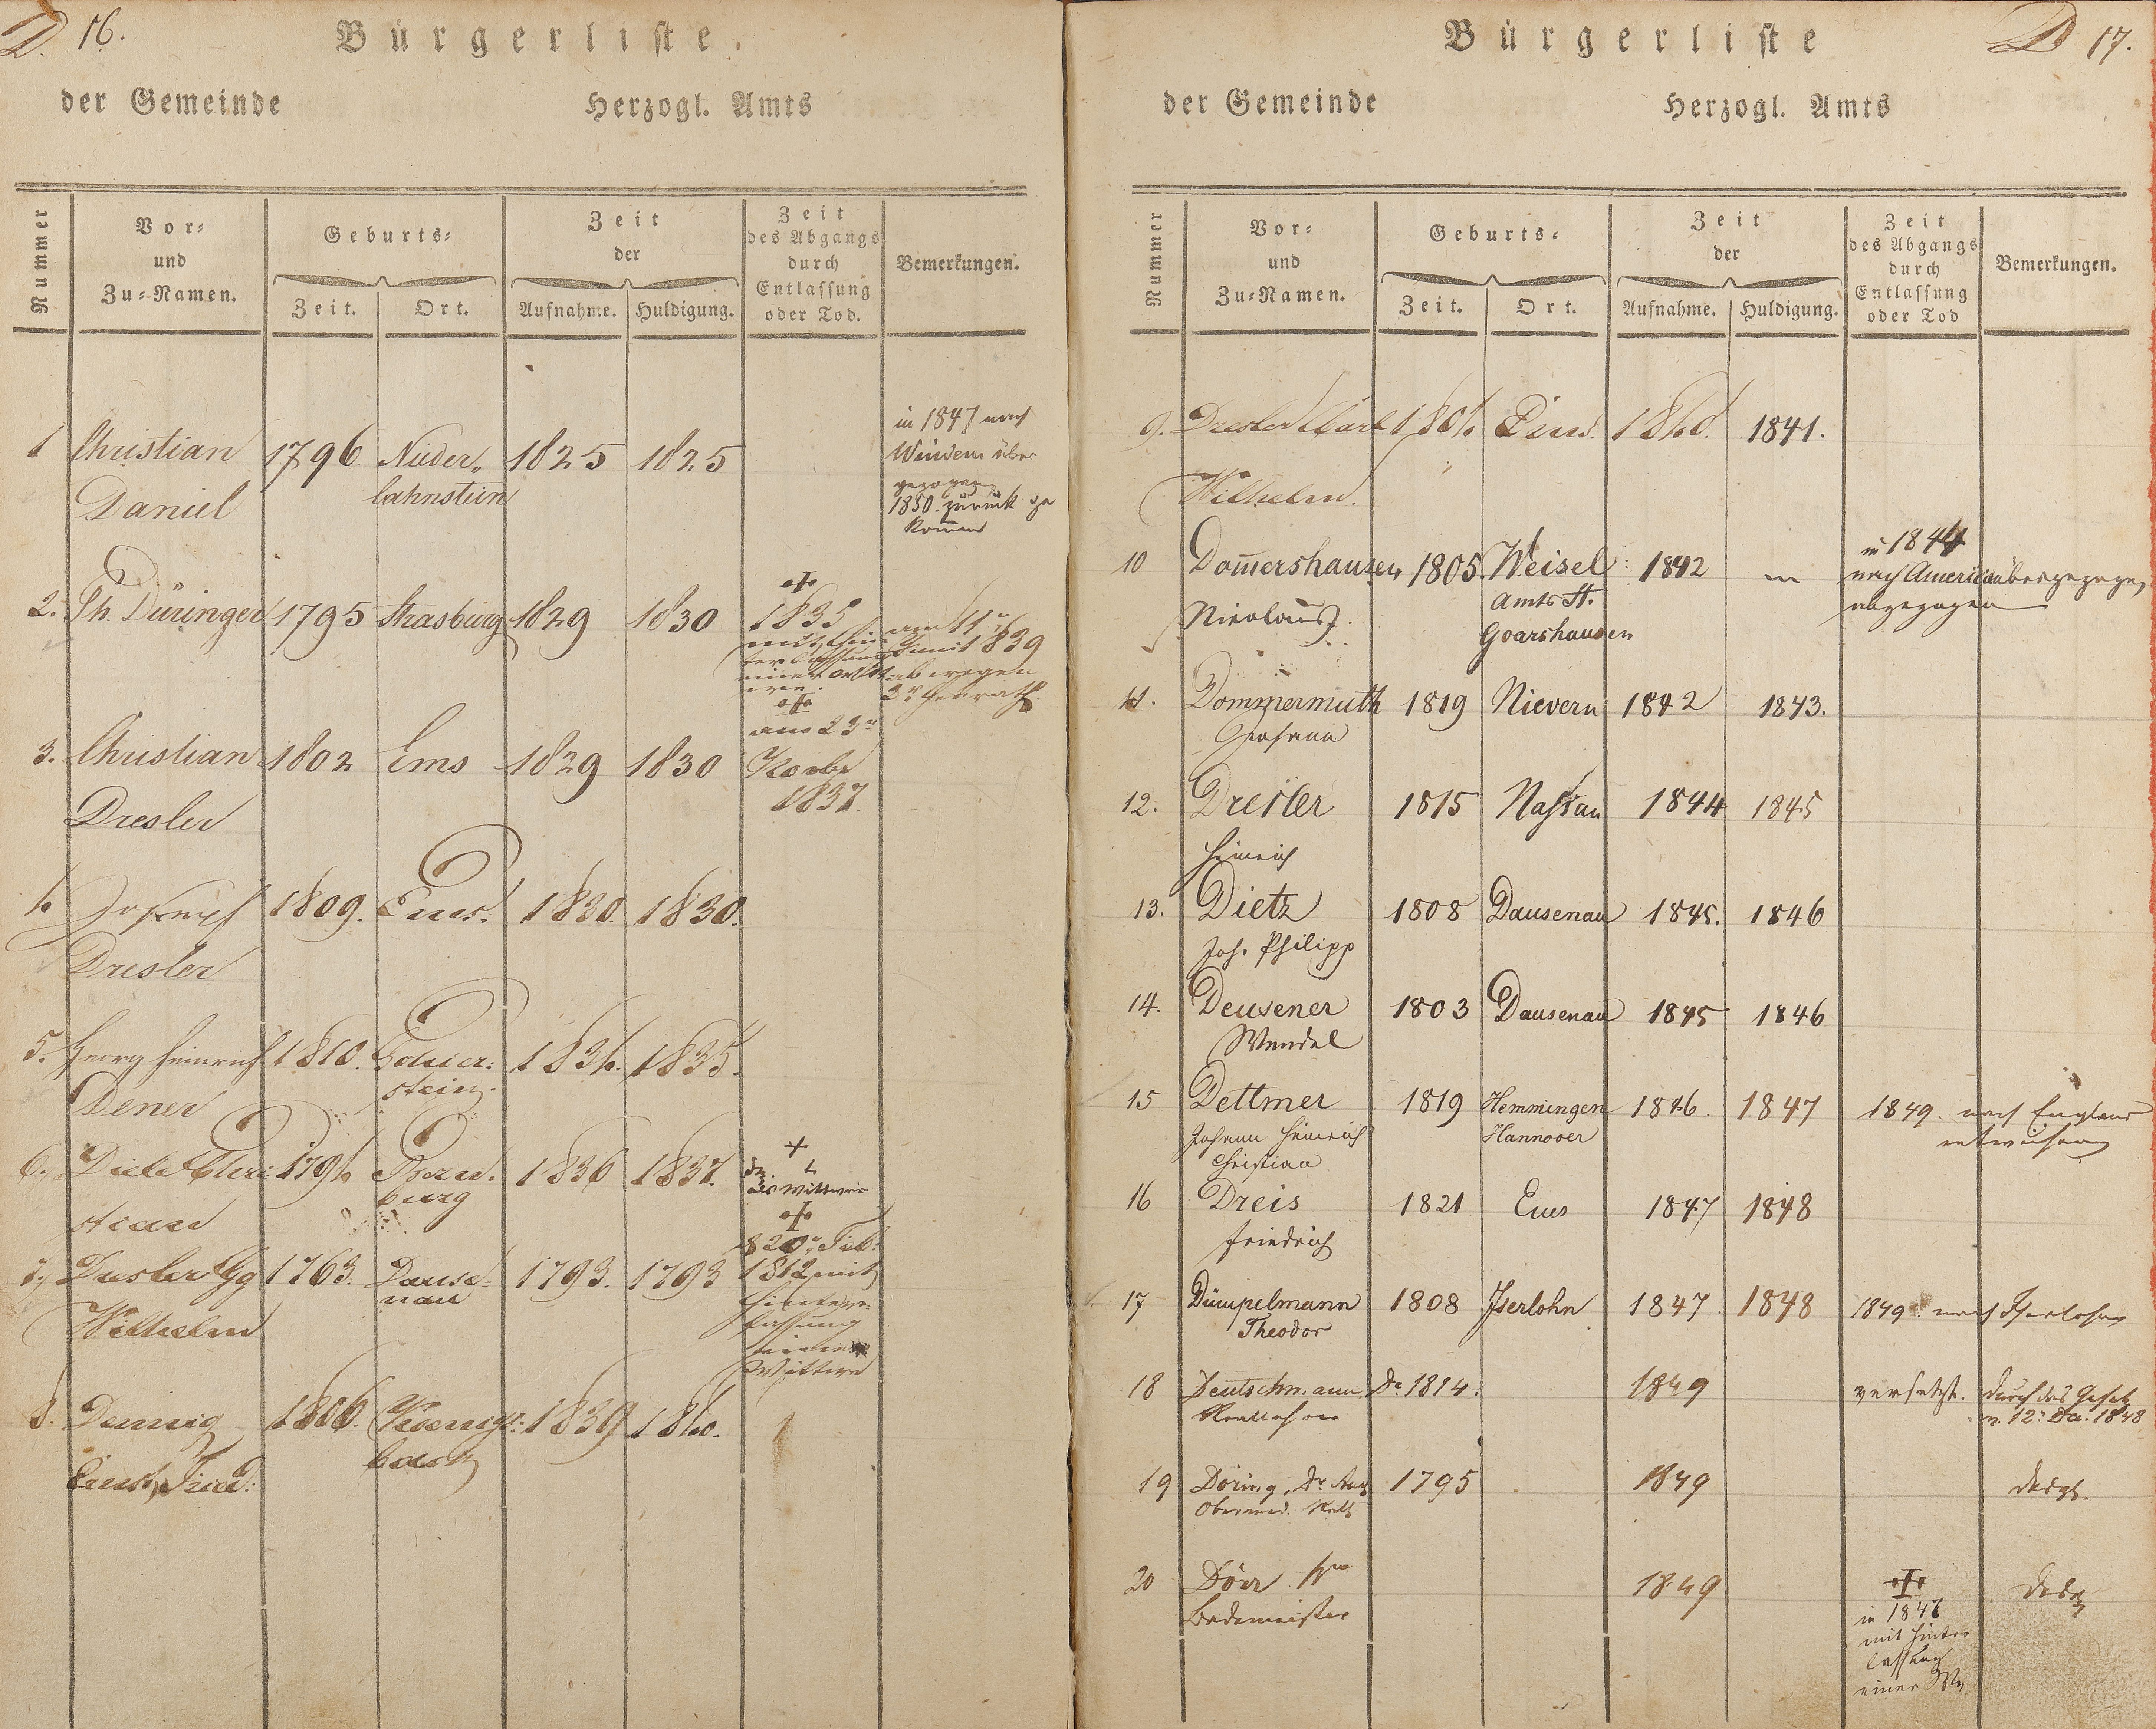 D. 16.
Bürgerliste.
der Gemeinde Herzogl. Amts
Nummer
Vor-
und
Zu-Namen.
Geburts-
Zeit. Ort.
Zeit
der
Aufnahme. Huldigung.
Zeit
des Abgangs
durch
Entlassung
oder Tod.
Bemerkungen.
1 Christian 1796 Nieder- 1825 1825
Daniel lahnstein
in 1847 nach
Winden über
gezogen
1850. zurück ge
kommen
2. Ph. Düringer 1795 Strasburg 1829 1830
1835
1839
3. Christian 1802 Ems 1829 1830
Dresler
am 23n
1837.
4. Joseph 1809. Ems. 1830. 1830.
Dresler
5. Georg Heinrich 1810. 1834. 1835.
stein.
Dener
6. 1794 1836 1837.
burg
stian
als Wittwer
7. Dresler Gg 1763. Dause- 1793. 1793
nau
Wilhelm
1812 mit
Hinter-
lassung
einer
Wittwe
8. 1806. 1839 1840.
bach
Ernst, Fried:
D 17.
Bürgerliste
der Gemeinde Herzogl. Amts
Nummer
Vor-
und
Zu-Namen.
Geburts-
Zeit. Ort.
Zeit
der
Aufnahme. Huldigung.
Zeit
des Abgangs
durch
Entlassung
oder Tod
Bemerkungen.
9. Dresler Carl 1804 Ems. 1840. 1841.
Wilhelm.
10 Dom̄ershausen 1805. Weisel 1842
Nicolaus. Amts St.
Goarshausen
in 1844
nach America übergezogen
abgezogen
11. Dommermuth 1819 Nievern 1842 1843.
Johann
12. Dresler 1815 Nassau 1844 1845
Heinrich
13. Dietz 1808 Dausenau 1845. 1846
Joh. Philipp
14. Deusener 1803 Dausenau 1845 1846
Wendel
15 Dettmer 1819 Hemmingen 1846. 1847 1849. nach England
Johann Heinrich Hannover entwichen
Christian
16 Dreis 1821 Ems 1847 1848
Friedrich
17 Dümpelmann 1808 Iserlohn 1847. 1848 1849. nach Iserlohn
Theodor
18 Deutschmann, Dr 1814. 1849 versetzt. durch das Gesetz
v. 12. 1848
19 Döring, Dr 1795 1849 desgl.
Obermed.
20 Dörr 1849
Bademeister
in 1847
mit Hinter
lassung
einer